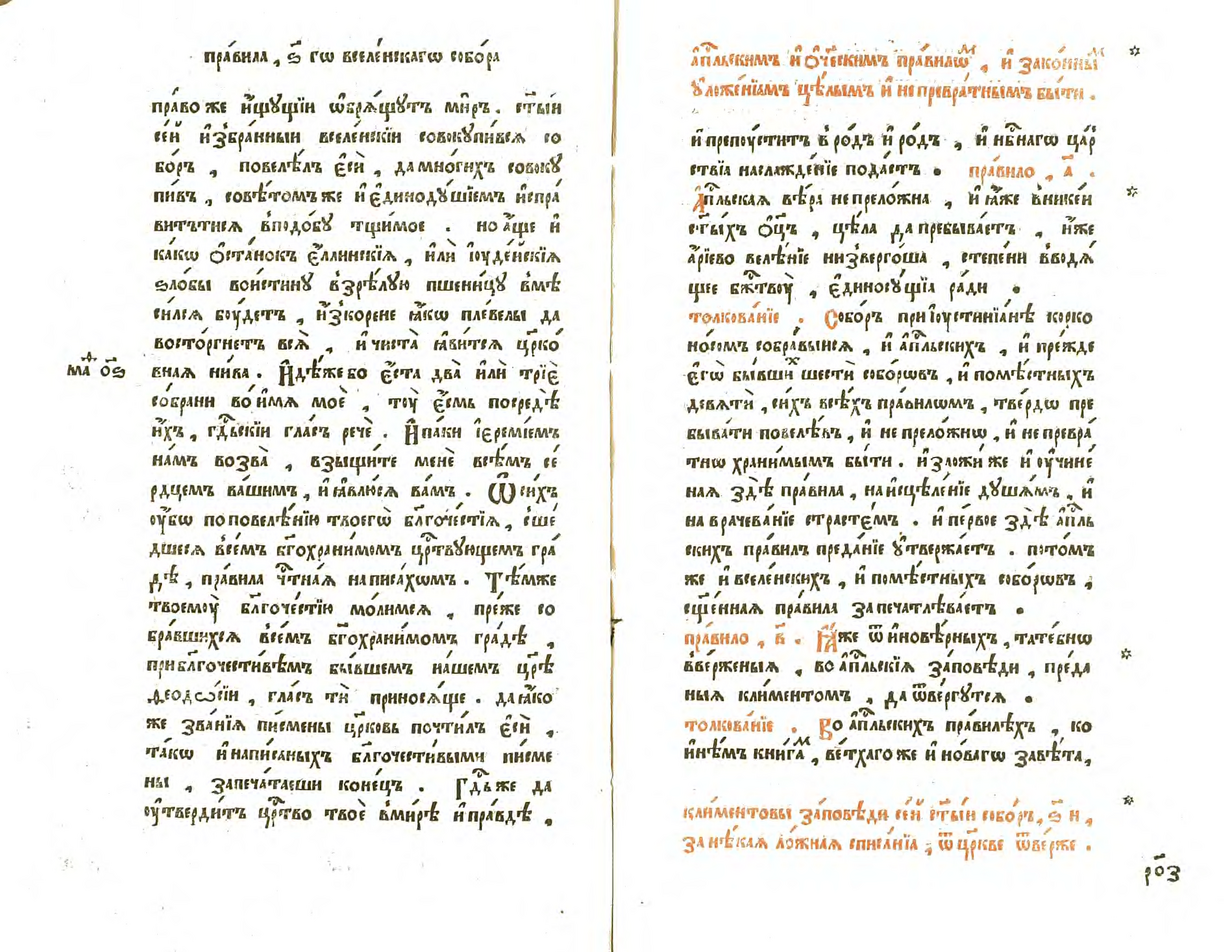 пра́вила , ѕ҃ гѡ вселе́нскагѡ собо́ра
пра́во же и҆́щꙋщїи ѡ҆брѧ́щꙋтъ ми́ръ . ст҃ы́и
се́й и҆збра́нныи вселе́нскїи совокꙋпи́всѧ со
бо́ръ , повелѣ́лъ є҆сѝ , да мно́гихъ совокꙋ
пи́въ , совѣ́томъ же и҆ є҆динодꙋ́шїемъ и҆спра́
витъ тиѧ̀ в̾подо́бꙋ тщи́мое . но а҆́ще и҆
ка́кѡ ѻ҆ста́нокъ є҆́ллинскїѧ , и҆лѝ і҆ꙋде́йскїѧ
ѕло́бы вои́стинꙋ в̾зрѣ́лꙋю пшени́цꙋ в̾мѣ
си́лсѧ бꙋ́детъ , и҆з̾ко́рене ꙗ҆́кѡ пле́велы да
восто́ргнетъ всѧ̀ , и҆ чиста̀ ꙗ҆ви́тсѧ цр҃ко́
внаѧ ни́ва . И҆дѣ́же бо є҆́ста два̀ и҆лѝ трїѐ
со́брани во и҆́мѧ моѐ , тоу̀ є҆́смь посредѣ̀
и҆́хъ , гд҇ьскїи гла́съ речѐ . И҆ па́ки і҆еремі́емъ
на́мъ возва̀ , взыщи́те менѐ всѣ́мъ се́
рдцемъ ва́шимъ , и҆ ꙗ҆влю́сѧ ва́мъ . Ѿ си́хъ
оу҆́бѡ по повелѣ́нїю твоегѡ̀ бл҃гоче́стїѧ , сше́
дшесѧ в̾се́мъ бг҃охрани́момъ цр҇твꙋющемъ гра́
дѣ , пра́вила чт҇на́ѧ написа́хѡмъ . Тѣ́мже
твоемоу̀ бл҃гоче́стїю мо́лимсѧ , пре́же со
бра́вшихсѧ в̾се́мъ бг҃охрани́момъ гра́дѣ ,
при бл҃гочести́вѣмъ бы́вшемъ на́шемъ цр҃ѣ̀
ѳеодо́сїи , гла́съ тѝ приносѧ́ще . да ꙗ҆́ко
же зва́нїѧ пи́смены цр҃ковь почти́лъ є҆сѝ ,
та́кѡ и҆ напи́саныхъ бл҃гочести́выми пи́сме
ны , запеча́таеши коне́цъ . Гд҇ь же да
оу҆тверди́тъ цр҇тво твоѐ в̾ми́рѣ и҆ пра́вдѣ ,
ма҇ѳ ѻ҃ѕ
а҆пⷭ҇льскимъ и҆ ѻ҆те́ческимъ пра́вилѡⷨ , и҆ зако́нныⷨ
оу҆ложе́нїамъ цѣ́лымъ и҆ непревра́тнымъ бы́ти .
и҆ препꙋ́ститъ в̾ ро́дъ и҆ ро́дъ , и҆ нбⷭ҇нагѡ ца́р
ствїа наслажде́нїе пода́стъ . пра́вило , а҃ .
А҆пⷭ҇льскаѧ вѣ́ра непрело́жна , и҆ ꙗ҆́же в̾нике́и
ст҃ы́хъ ѻ҆ц҃ъ , цѣ́ла да пребыва́етъ , и҆́же
а҆́рїево велѣ́нїе низверго́ша , сте́пени вводѧ́
щее бжⷭ҇твоу̀ , є҆диносꙋ́щїа ра́ди .
толкова́нїе . Собо́ръ при і҆ꙋстинїа́нѣ корко
но́сомъ собра́выисѧ , и҆ а҆пⷭ҇льскихъ , и҆ пре́жде
є҆гѡ̀ бы́вшиⷯ шестѝ собо́рѡвъ , и҆ помѣ́стныхъ
девѧтѝ , си́хъ всѣ́хъ пра́вилѡмъ , тве́рдѡ пре
быва́ти повелѣ́въ , и҆ непрело́жнѡ , и҆ непревра́
тнѡ храни́мымъ бы́ти . и҆зложи́ же и҆ оу҆чине́
наѧ здѣ̀ пра́вила , на и҆сцѣле́нїе дꙋша́мъ , и҆
на врачева́нїе страсте́мъ . и҆ пе́рвое здѣ̀ а҆пⷭ҇ль
скихъ пра́вилъ преда́нїе оу҆твержа́етъ . пото́мъ
же и҆ вселе́нскихъ , и҆ помѣ́стныхъ собо́рѡвъ ,
сщ҃е́ннаѧ пра́вила запечатлѣва́етъ .
пра́вило , в҃ . Ꙗ҆́же ѿ и҆новѣ́рныхъ , тате́бнѡ
вве́рженыѧ , во а҆пⷭ҇льскїѧ за́повѣди , пре́да
ныѧ кли́ментомъ , да ѿве́ргꙋтсѧ .
толкова́нїе . Во а҆пⷭ҇льскихъ пра́вилѣхъ , ко
и҆нѣ́мъ кни́гаⷨ , ве́тхаго же и҆ но́вагѡ завѣ́та ,
кли́ментовы за́повѣди се́й ст҃ы́и собо́ръ , ѕ҃ и ,
за нѣ́каѧ ло́жнаѧ списа́нїа , ѿ цр҃кве ѿве́рже .
р҃ѻз